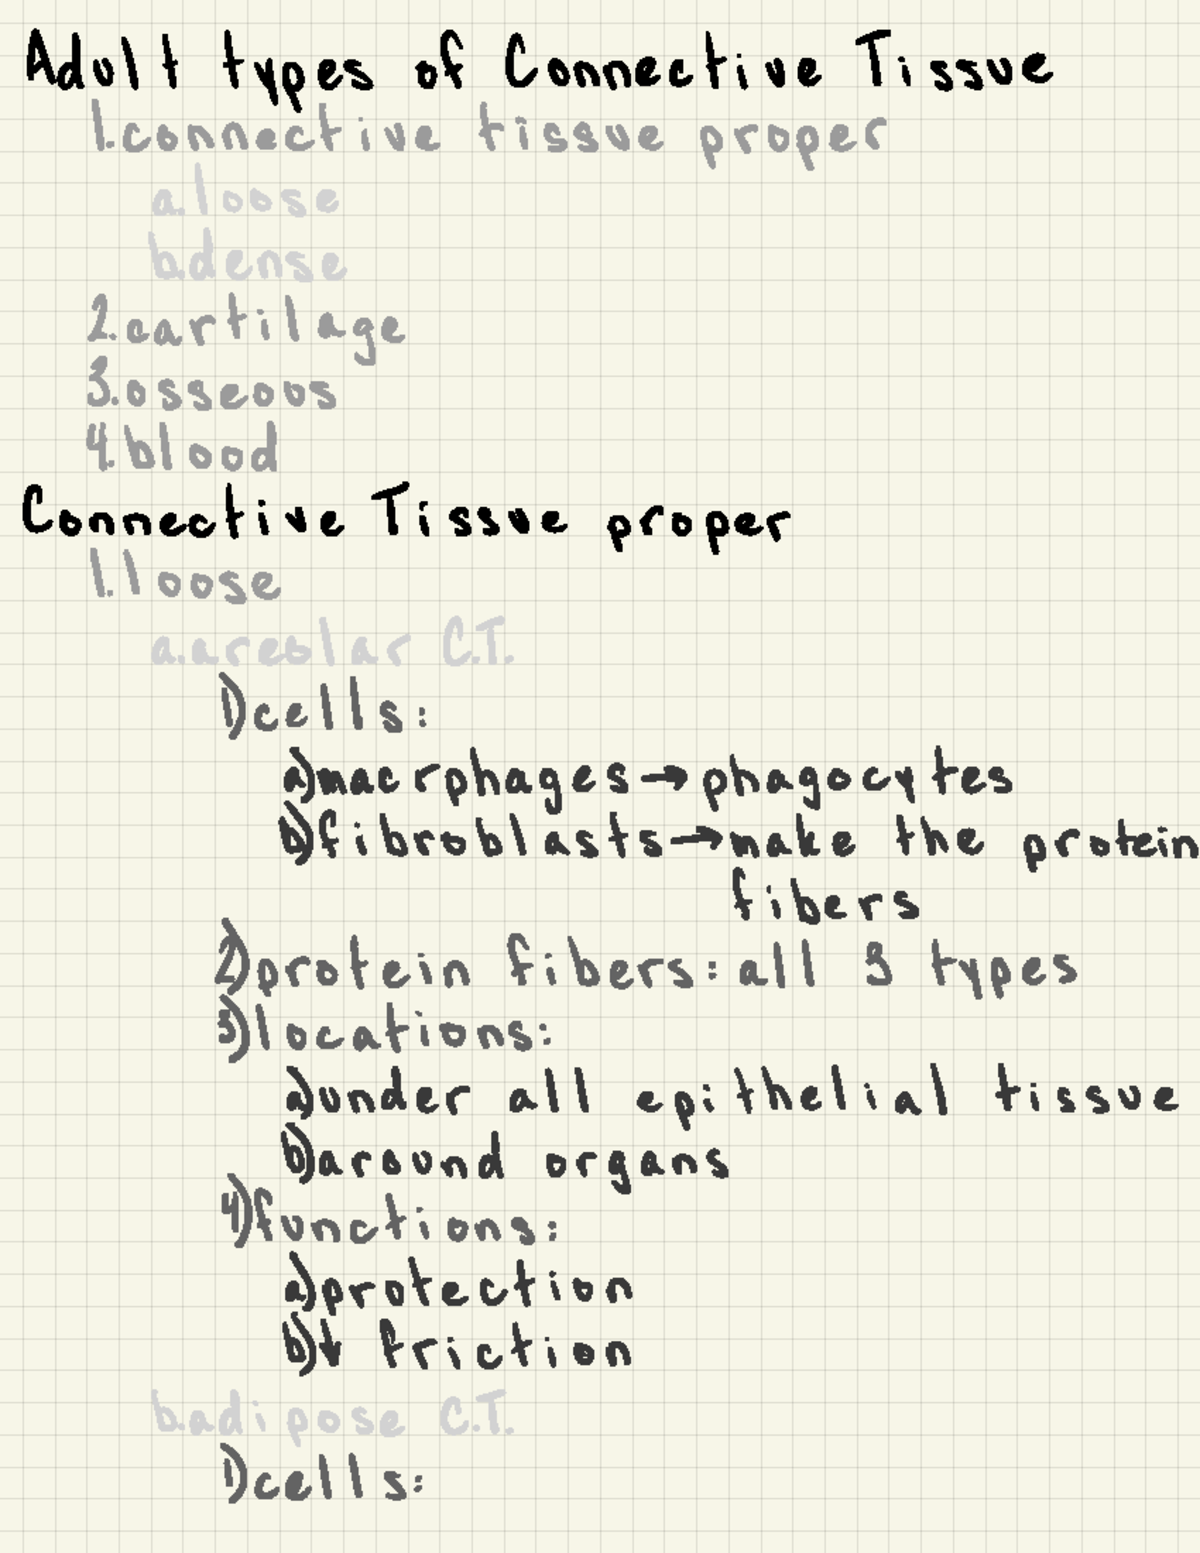 Adult types of Connective Tissue
1. connective tissue proper
a. loose
b. dense
2. cartilage
3. osseous
4. blood
Connective Tissue proper
1. loose
a. areolar C.T.
1) cells:
a) macrphages → phagocytes
b) fibroblasts → make the protein
fibers
2) protein fibers: all 3 types
3) locations:
a) under all epithelial tissue
b) around organs
4) functions:
a) protection
b) ↓ friction
b. adipose C.T.
1) cells: